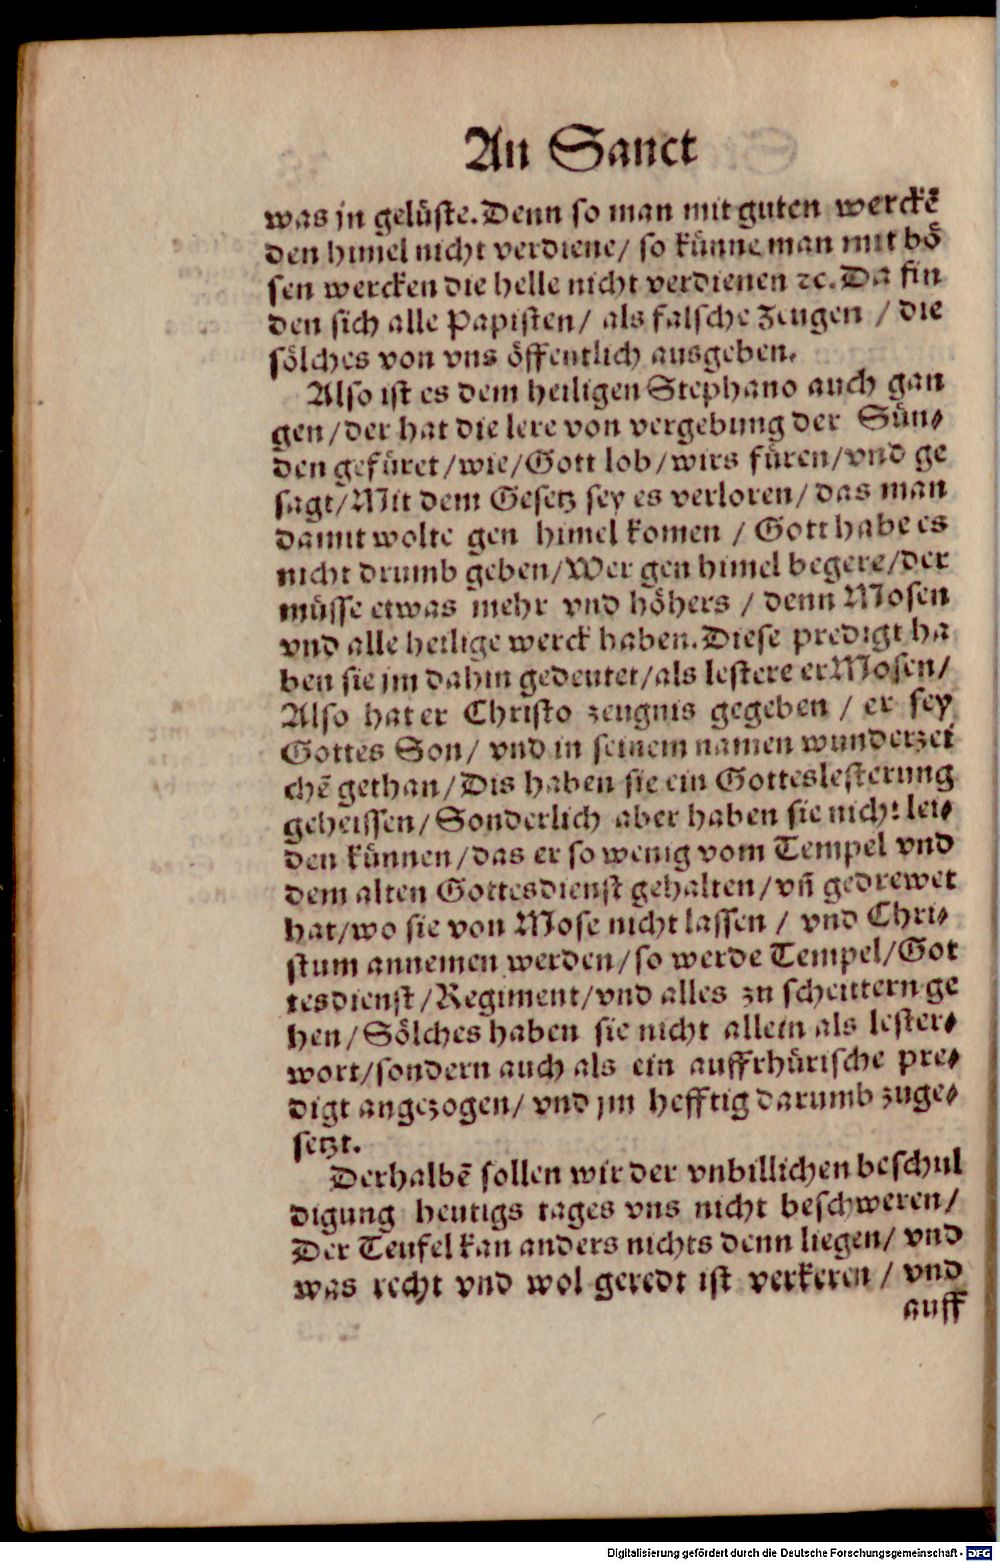 An Sanct
was jn gelüste. Denn so man mit guten werckẽ
den himel nicht verdiene/ so künne man mit bö
sen wercken die helle nicht verdienen ꝛc. Da fin
den sich alle Papisten/ als falsche Zeugen / die
sölches von vns öffentlich ausgeben.
Also ist es dem heiligen Stephano auch gan
gen/der hat die lere von vergebung der Sün⸗
den gefüret/wie/Gott lob/wirs füren/vnd ge
sagt/Mit dem Gesetz sey es verloren/das man
damit wolte gen himel komen / Gott habe es
nicht drumb geben/Wer gen himel begere/der
müsse etwas mehr vnd höhers / denn Mosen
vnd alle heilige werck haben. Diese predigt ha
ben sie jm dahin gedeutet/als lestere er Mosen/
Also hat er Christo zeugnis gegeben / er sey
Gottes Son/ vnd in seinem namen wunderzei
chẽ gethan/Dis haben sie ein Gotteslesterung
geheissen/Sonderlich aber haben sie nicht lei⸗
den künnen/das er so wenig vom Tempel vnd
dem alten Gottesdienst gehalten/vñ gedrewet
hat/wo sie von Mose nicht lassen / vnd Chri⸗
stum annemen werden/so werde Tempel/Got
tesdienst/Regiment/vnd alles zu scheittern ge
hen/Sölches haben sie nicht allein als lester⸗
wort/sondern auch als ein auffrhürische pre⸗
digt angezogen/ vnd jm hefftig darumb zuge⸗
setzt.
Derhalbẽ sollen wir der vnbillichen beschul
digung heutigs tages vns nicht beschweren/
Der Teufel kan anders nichts denn liegen/ vnd
was recht vnd wol geredt ist verkeren / vnd
auff
Digitalisierung gefördert durch die Deutsche Forschungsgemeinschaft - DFG